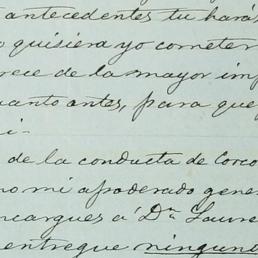 antecedentes tu harás
quisiera yo cometer
rece de la mayor imp
uanto antes, para que
i.
de la conducta de Corco
no mi apoderado gener
ncargues á Dn Laure
entregue ningun